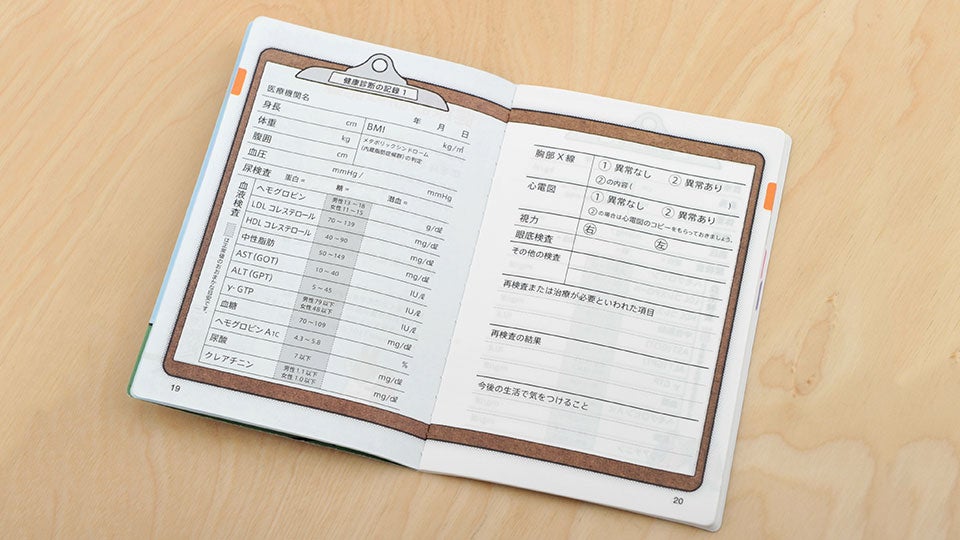 健康診断の記録 1
医療機関名 年 月 日
身長 cm BMI kg/㎡
体重 kg メタボリックシンドローム
(内臓脂肪症候群)の判定
腹囲 cm
血圧 mmHg / mmHg
尿検査 蛋白= 糖= 潜血=
血液検査
は正常値のおおまかな目安です。
ヘモグロビン 男性13~18 女性11~15 g/㎗
LDL コレステロール 70~139 mg/㎗
HDL コレステロール 40~90 mg/㎗
中性脂肪 50~149 mg/㎗
AST(GOT) 10~40 IU/ℓ
ALT(GPT) 5~45 IU/ℓ
γ-GTP 男性79以下 女性48以下 IU/ℓ
血糖 70~109 mg/㎗
ヘモグロビンA1C 4.3~5.8 %
尿酸 7以下 mg/㎗
クレアチニン 男性1.1以下 女性1.0以下 mg/㎗
19
胸部X線 ① 異常なし ② 異常あり
②の内容( )
心電図 ① 異常なし ② 異常あり
②の場合は心電図のコピーをもらっておきましょう。
視力 右 左
眼底検査
その他の検査
再検査または治療が必要といわれた項目
再検査の結果
今後の生活で気をつけること
20